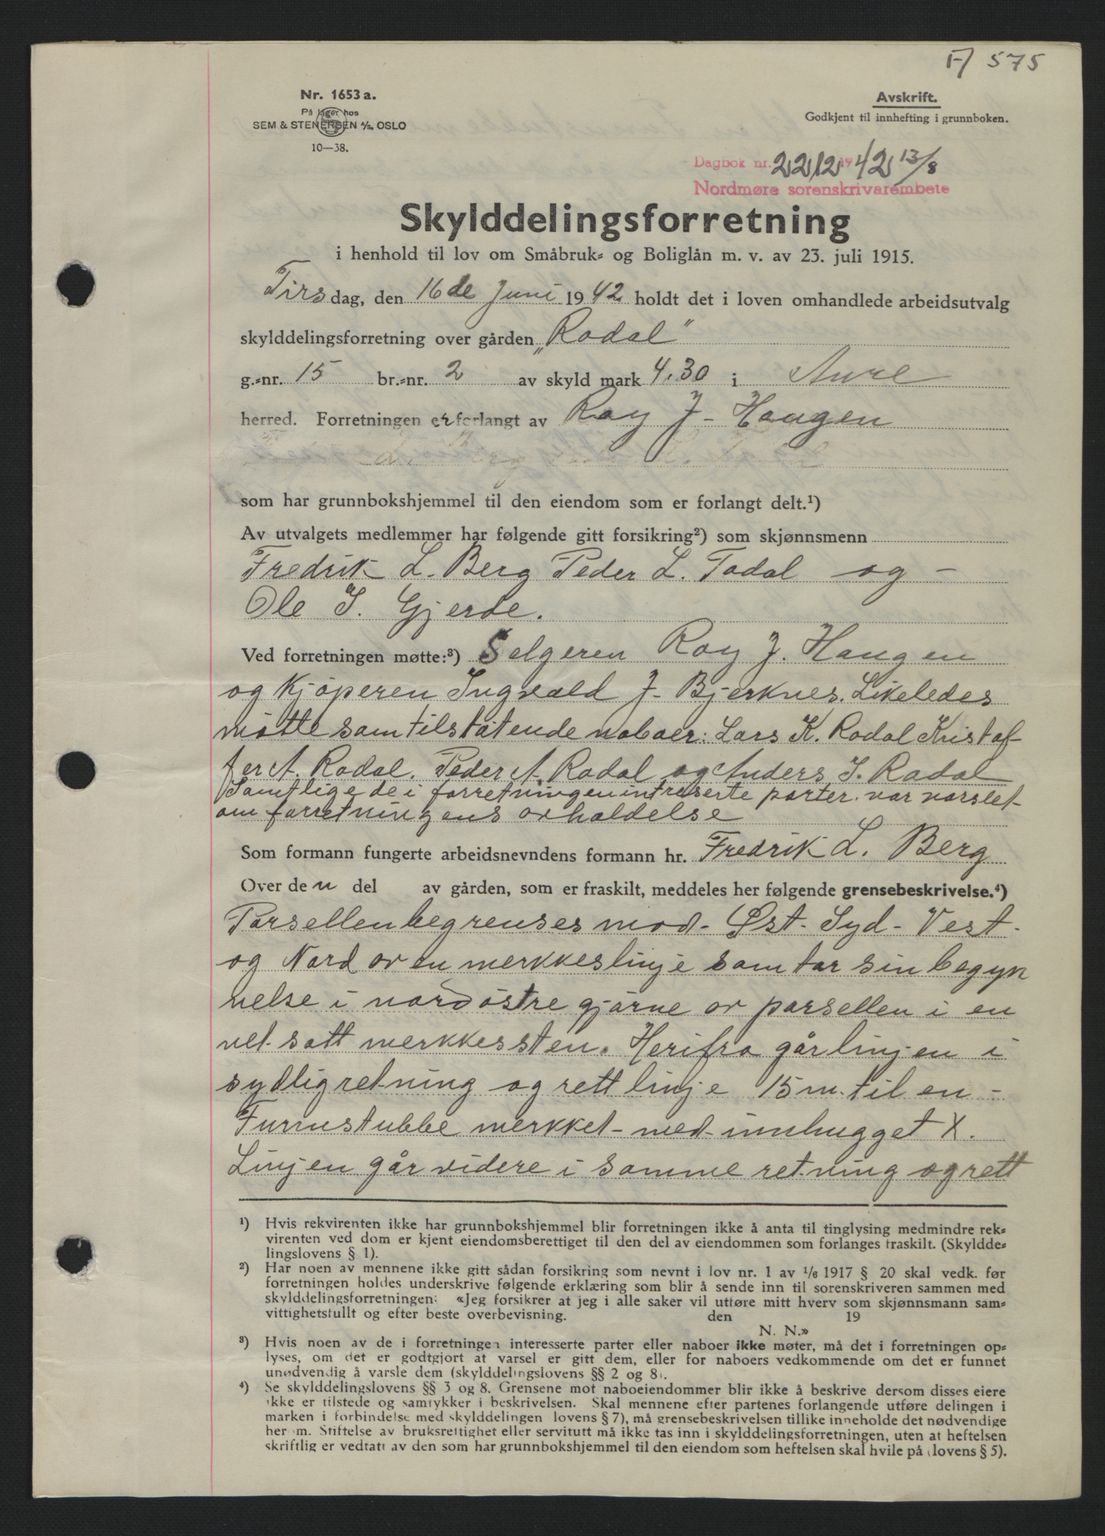 A 575
Nr. 1653 a.
På lager hos
SEM & STENERSEN A/S, OSLO
10—38.
Avskrift.
Godkjent til innhefting i grunnboken.
Dagbok nr. 2212 19 42 13/8
Nordmøre sorenskrivarembete
Skylddelingsforretning
i henhold til lov om Småbruk- og Boliglån m. v. av 23. juli 1915.
Tirsdag, den 16de Juni 1942 holdt det i loven omhandlede arbeidsutvalg
skylddelingsforretning over gården „Rodal"
g.-nr. 15 br.-nr. 2 av skyld mark 4.30 i Aure
herred. Forretningen er forlangt av Roy J. Haugen
som har grunnbokshjemmel til den eiendom som er forlangt delt.¹)
Av utvalgets medlemmer har følgende gitt forsikring²) som skjønnsmenn
Fredrik L. Berg Peder L. Todal og -
Ole I. Gjerde.
Ved forretningen møtte:³) Selgeren Roy J. Haugen
og Kjøperen Ingvald J. Bjerknes. Likeledes
møtte samtilstøtende naboer: Lars K. Rodal Kristof-
fer A. Rodal. Peder A. Rodal og Anders I. Rodal
Samtlige de i forretningen intreserte parter var varslet
om forretningens avholdelse
Som formann fungerte arbeidsnevndens formann hr. Fredrik L. Berg
Over den del av gården, som er fraskilt, meddeles her følgende grensebeskrivelse.⁴)
Parsellen begrenses mod- Øst- Syd- Vest-
og Nord av en merkkeslinje som tar sin begyn
nelse i nordøstre gjørne av parsellen i en
net satt merkkessten. Herifra går linjen i
sydlig retning og rett linje 15 m. til en -
Furrustubbe merkket- med innhugget X.
Linjen går videre i samme retning og rett
¹) Hvis rekvirenten ikke har grunnbokshjemmel blir forretningen ikke å anta til tinglysing medmindre rek-
virenten ved dom er kjent eiendomsberettiget til den del av eiendommen som forlanges fraskilt. (Skyldde-
lingslovens § 1).
²) Har noen av mennene ikke gitt sådan forsikring som nevnt i lov nr. 1 av 1/6 1917 § 20 skal vedk. før
forretningen holdes underskrive følgende erklæring som blir å sende inn til sorenskriveren sammen med
skylddelingsforretningen: «Jeg forsikrer at jeg i alle saker vil utføre mitt hverv som skjønnsmann sam-
vittighetsfullt og efter beste overbevisning. den 19
N. N.»
³) Hvis noen av de i forretningen interesserte parter eller naboer ikke møter, må det i forretningen op-
lyses, om det er godtgjort at varsel er gitt dem, eller for naboers vedkommende om det er funnet
unødvendig å varsle dem (skylddelingslovens §§ 2 og 8).
⁴) Se skylddelingslovens §§ 3 og 8. Grensene mot naboeiendommer blir ikke å beskrive dersom disses eiere
ikke er tilstede og samtykker i beskrivelsen. Skal mennene efter partenes forlangende utføre delingen i
marken i forbindelse med skylddelingen lovens § 7), må grensebeskrivelsen tillike inneholde det nødvendige
her om. Stiftelse av bruksrettighet eller servitutt må ikke tas inn i skylddelingsforretningen, uten at heftelsen
skriftlig er vedtatt av den som har grunnbokshjemmel til den eiendom som heftelsen skal hvile på (lovens § 5).